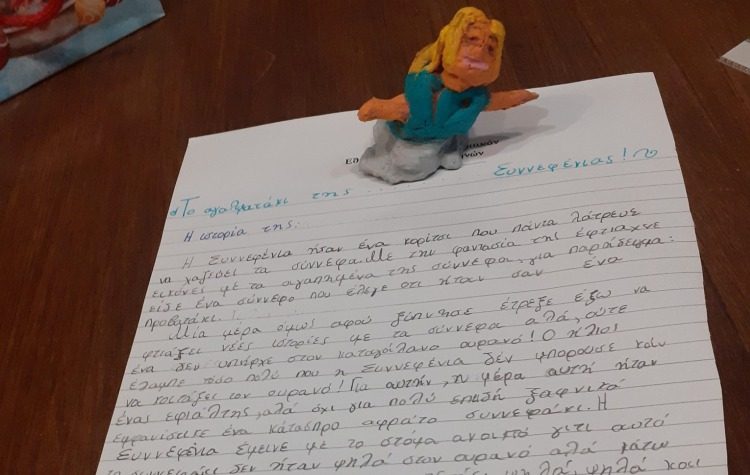 Ελ
μικών
ινών
Το αγαλματάκι της Συννεφένιας!
Η ιστορία της:
Η Συννεφένια ήταν ένα κορίτσι που πάντα λάτρευε
να χαζεύει τα σύννεφα. Με την φαντασία της έφτιαχνε
εικόνες με τα αγαπημένα της σύννεφα, για παράδειγμα:
είδε ένα σύννεφο που έλεγε οτι ήταν σαν ένα
προβατάκι!
Μία μέρα όμως αφού ξύπνησε έτρεξε έξω να
φτιάξει νέες ιστορίες με τα σύννεφα αλά, ούτε
ένα δεν υπήρχε στον καταγάλανο ουρανό! Ο ήλιος
έλαμπε τόσο πολύ που η Συννεφένια δεν μπορούσε καν
να κοιτάξει τον ουρανό! Για αυτήν, η μέρα αυτή ήταν
ένας εφιάλτης, αλά όχι για πολύ επειδή ξαφνικά
εμφανίστικε ένα κάτασπρο αφράτο συννεφάκι. Η
Συννεφένια έμεινε με το στόμα ανοικτό γιτί αυτό
το συννεφάκι δεν ήταν ψηλά στον ουρανό αλά κάτω
ψηλά, ψηλά και